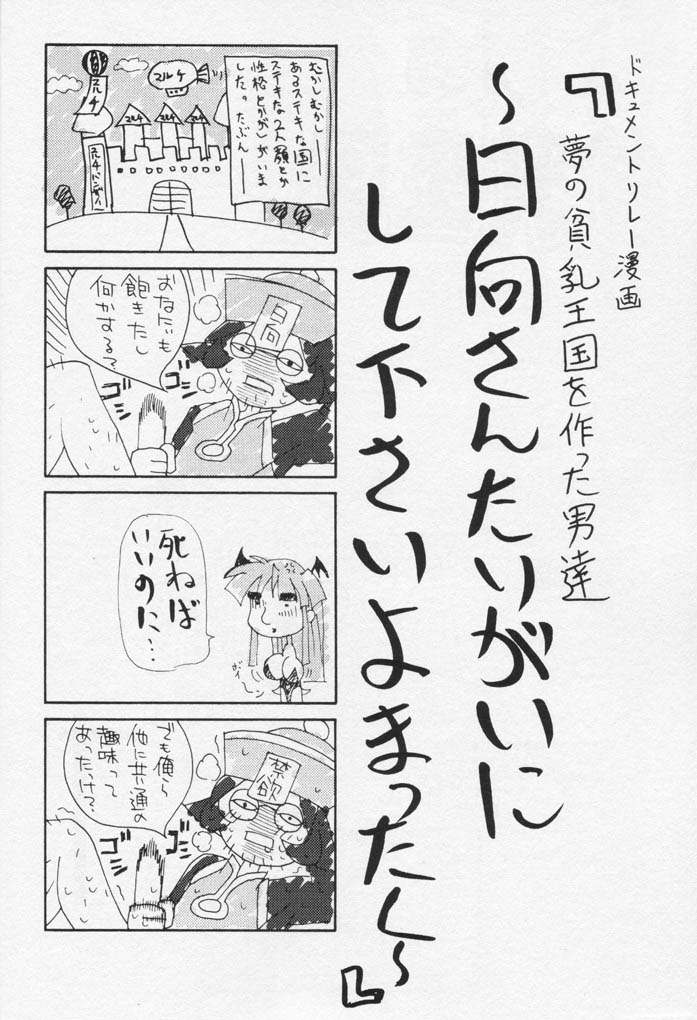 ドキュメントリレー漫画
『夢の貧乳王国を作った男達
～日向さんたいがいに
して下さいよまったく～』
むかしむかし
あるステキな国に
ステキな2人(顔とか
性格とかが)がいま
した。たぶん
マルケ
マルチ
マルチ
マルチ
マルチ
マルチバンザイ
日向
おなたいも
飽きたし
何かする?
ゴシ
ゴシ
死ねば
いいのに…
禁欲
でも俺ら
他に共通の
趣味って
あったっけ?
ゴシ
ゴシ